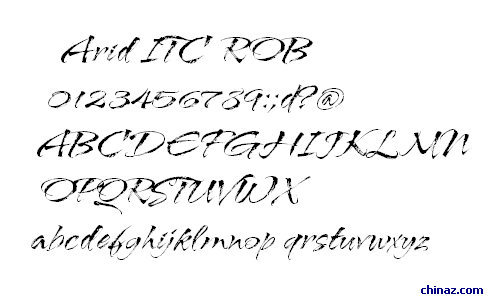 Arid ITC ROB
0123456789:;d?@
ABCDEFGHIJKLMN
OPQRSTUVWX
abcdefghijklmnop qrstuvwxyz
chinaz.com